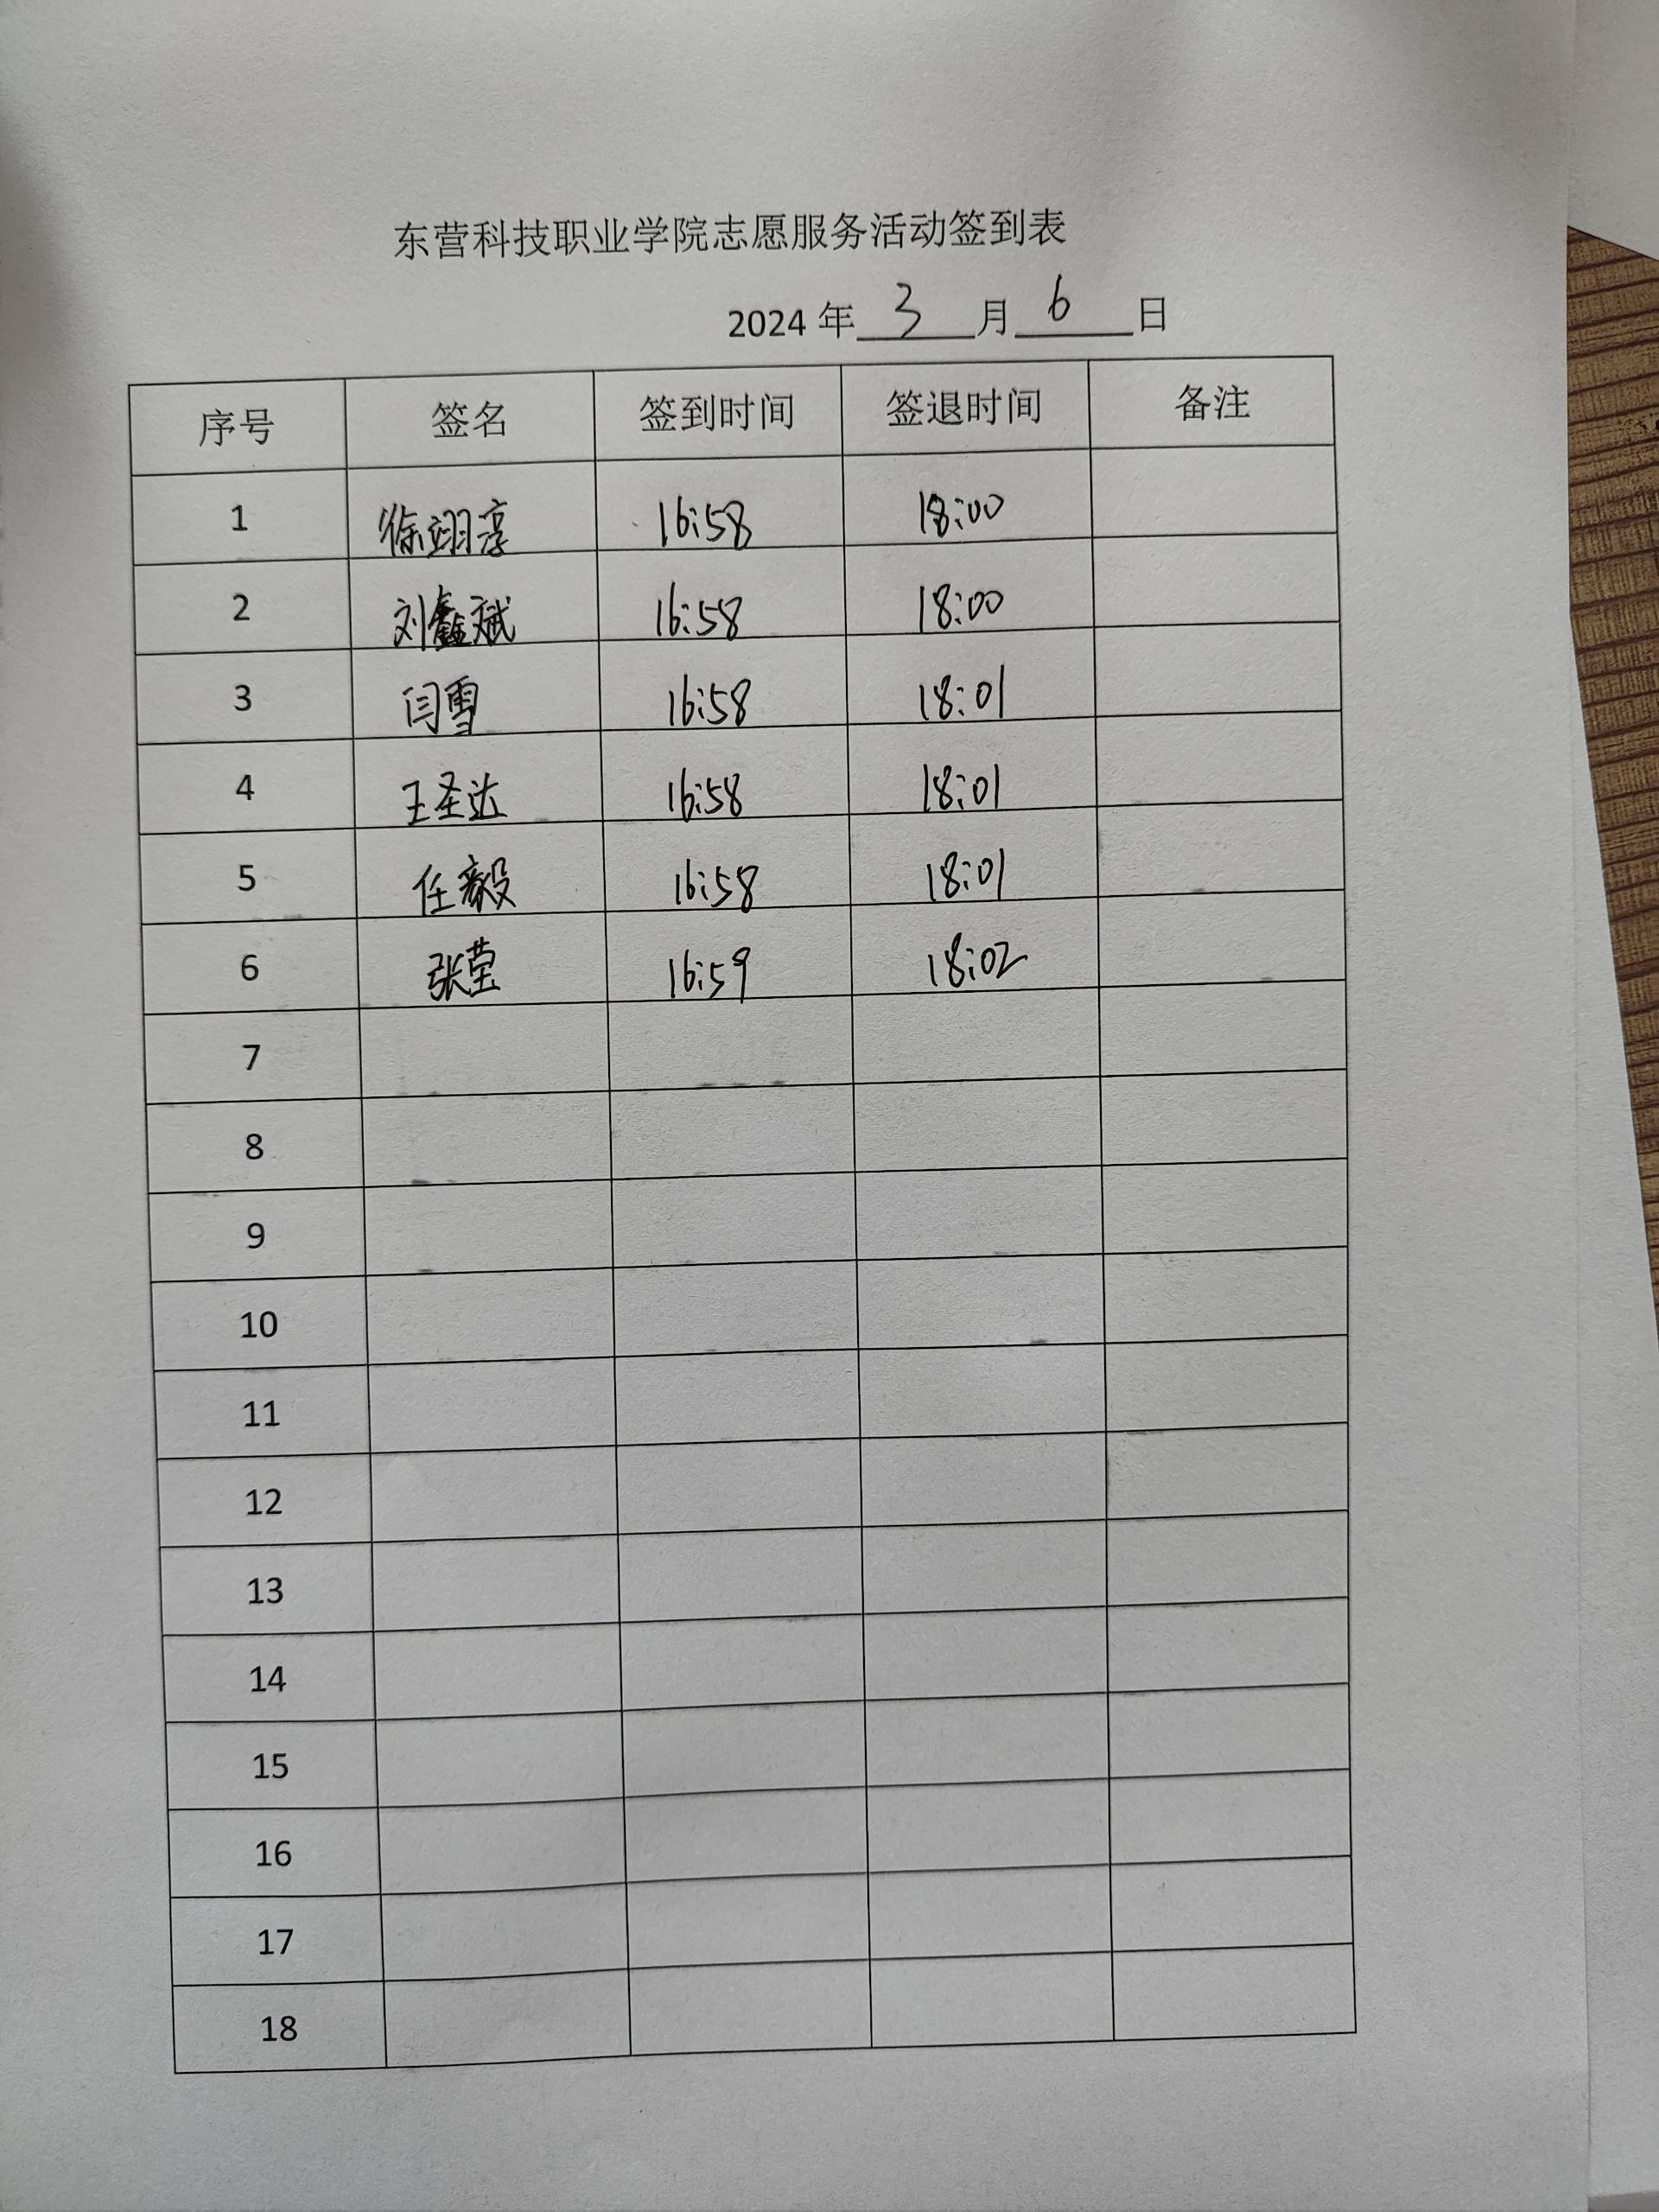 东营科技职业学院志愿服务活动签到表
2024 年 3 月 6 日
序号 签名 签到时间 签退时间 备注
1 徐翊淳 16:58 18:00
2 刘鑫斌 16:58 18:00
3 闫雪 16:58 18:01
4 王圣达 16:58 18:01
5 任毅 16:58 18:01
6 张莹 16:59 18:02
7
8
9
10
11
12
13
14
15
16
17
18